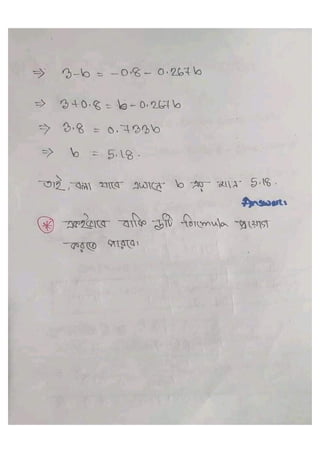 ⇒ 3-b = -0.8 - 0.267b
⇒ 3+0.8 = b-0.267b
⇒ 3.8 = 0.733b
⇒ b = 5.18.
তাই, বলা যাবে এখানে b এর মান 5.18.
Answer:
* একইভাবে বাকি দুটি formula প্রয়োগ
করতে পারবে।